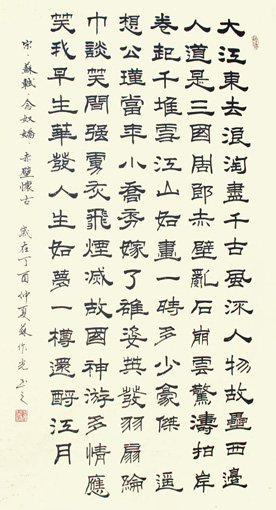 大江東去浪淘盡千古風流人物故壘西邊
人道是三國周郎赤壁亂石崩雲驚濤拍岸
卷起千堆雪江山如畫一時多少豪傑 遥
想公瑾當年小喬初嫁了雄姿英發羽扇綸
巾談笑間强虜灰飛煙滅故國神游多情應
笑我早生華發人生如夢一樽還酹江月
宋 蘇軾 念奴嬌 赤壁懷古 歲在丁酉仲夏蘇作光书之